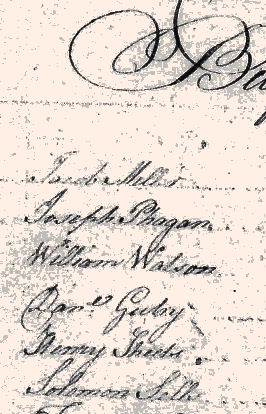 Jacob Miller
Joseph Phagan
William Watson
Danel Guby
Henry Sheets
Solomon Sills